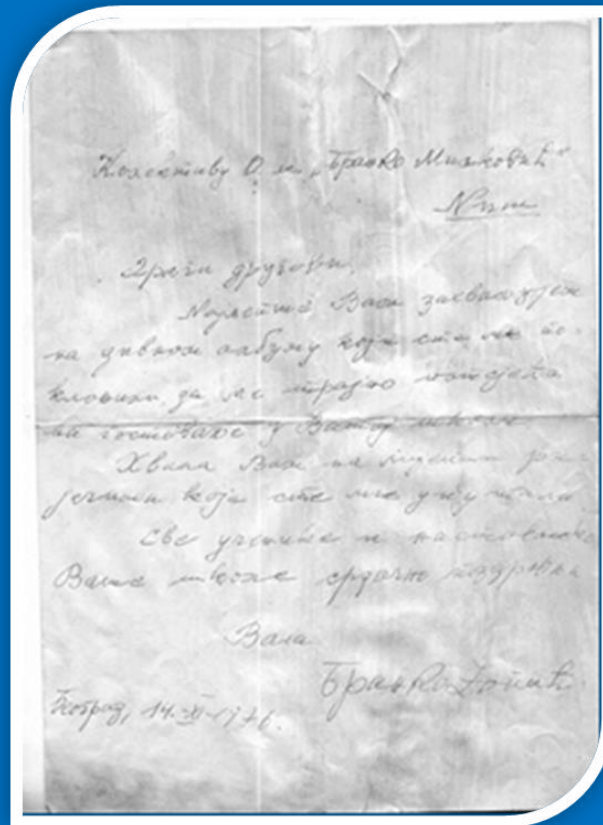 Колективу О. ш. „Бранко Миљковић“
Ниш
Драги другови,
Најлепше Вам захваљујем
на дивном албуму који сте ми по-
клонили да ме трајно
на гостовање у Вашој школи.
Хвала Вам на
које сте ми упутили.
Све ученике и наставнике
Ваше школе срдачно поздравља
Ваш
Бранко Ћопић
Београд, 14. XI 1976.